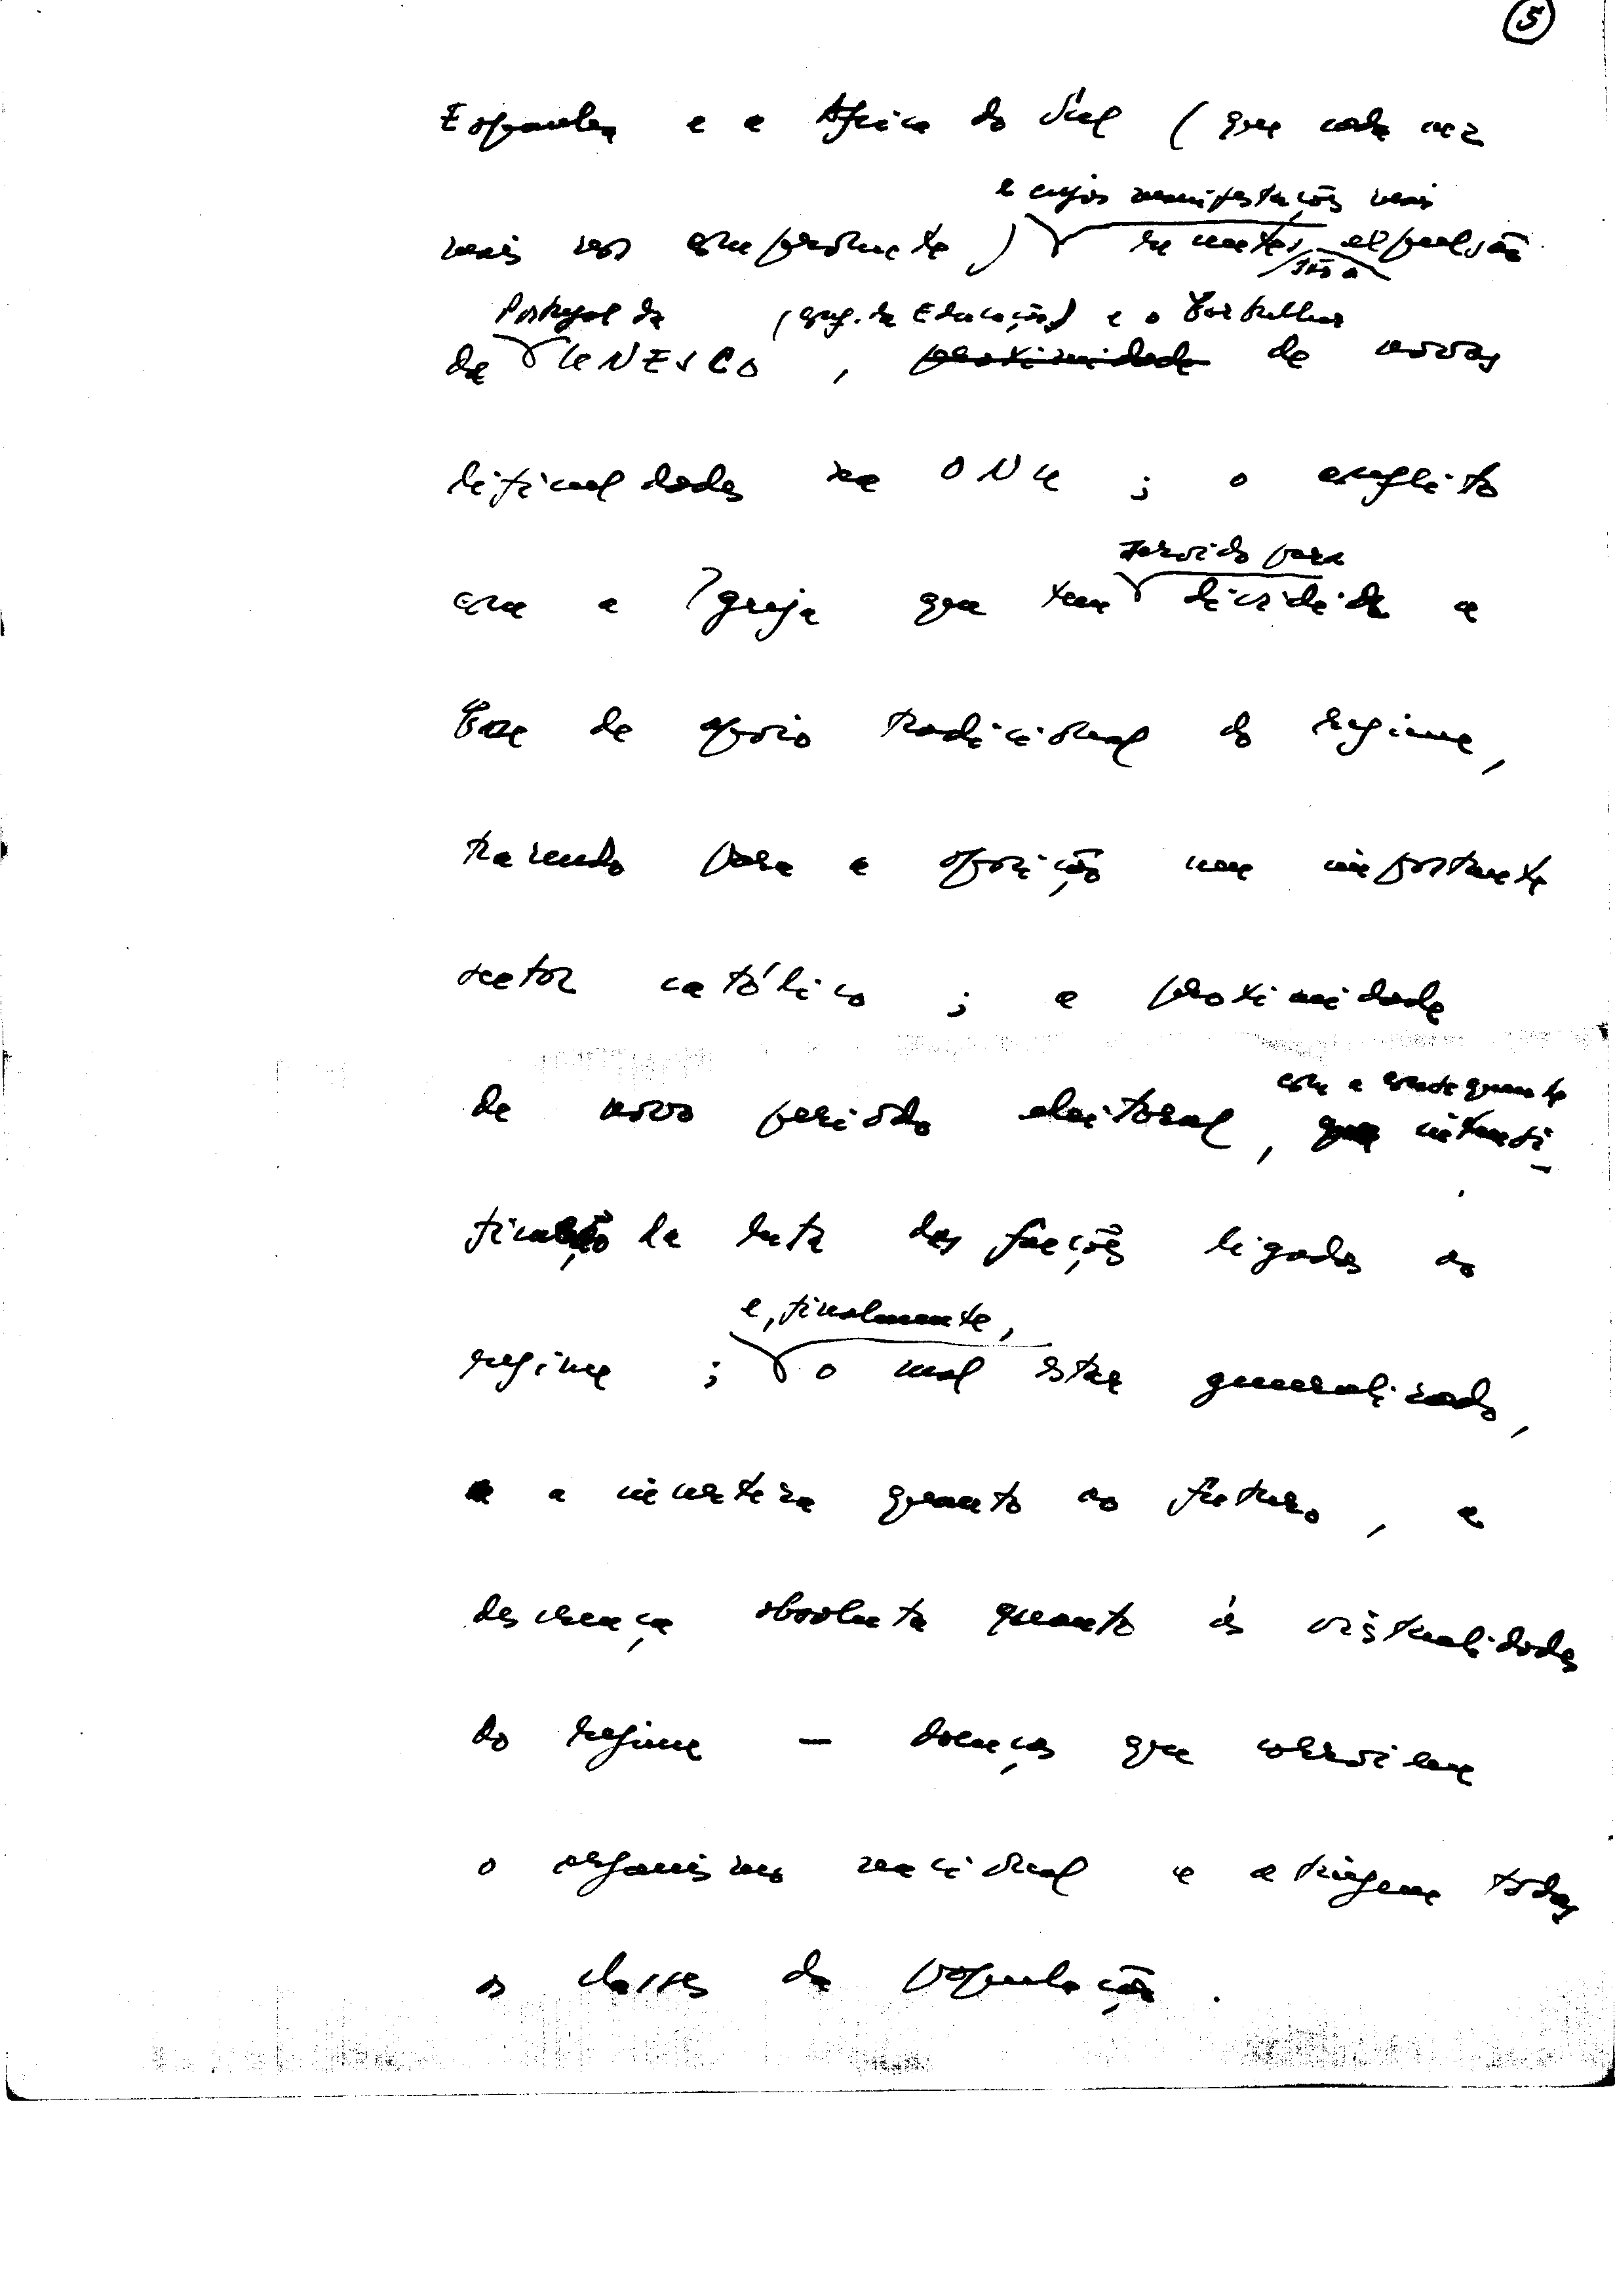 5
Espanha e a África do Sul (que cada vez
e cujas manifestações mais
mais nos compromete) recentes são a expulsão
Portugal da (org. da Educação) e o
de UNESCO, proximidade de novas
dificuldades na ONU; o conflito
servido para
com a Igreja que tem dividido a
base de apoio tradicional do regime,
trazendo para a oposição um importante
sector católico; a proximidade
com a consequente
de novo período eleitoral, que intensi-
ficação da luta das facções ligadas ao
e, finalmente,
regime; o mal estar generalizado,
a incerteza quanto ao futuro, a
descrença absoluta quanto às virtualidades
do regime — doenças que corroiem
o organismo nacional e atingem todas
as classes da população.